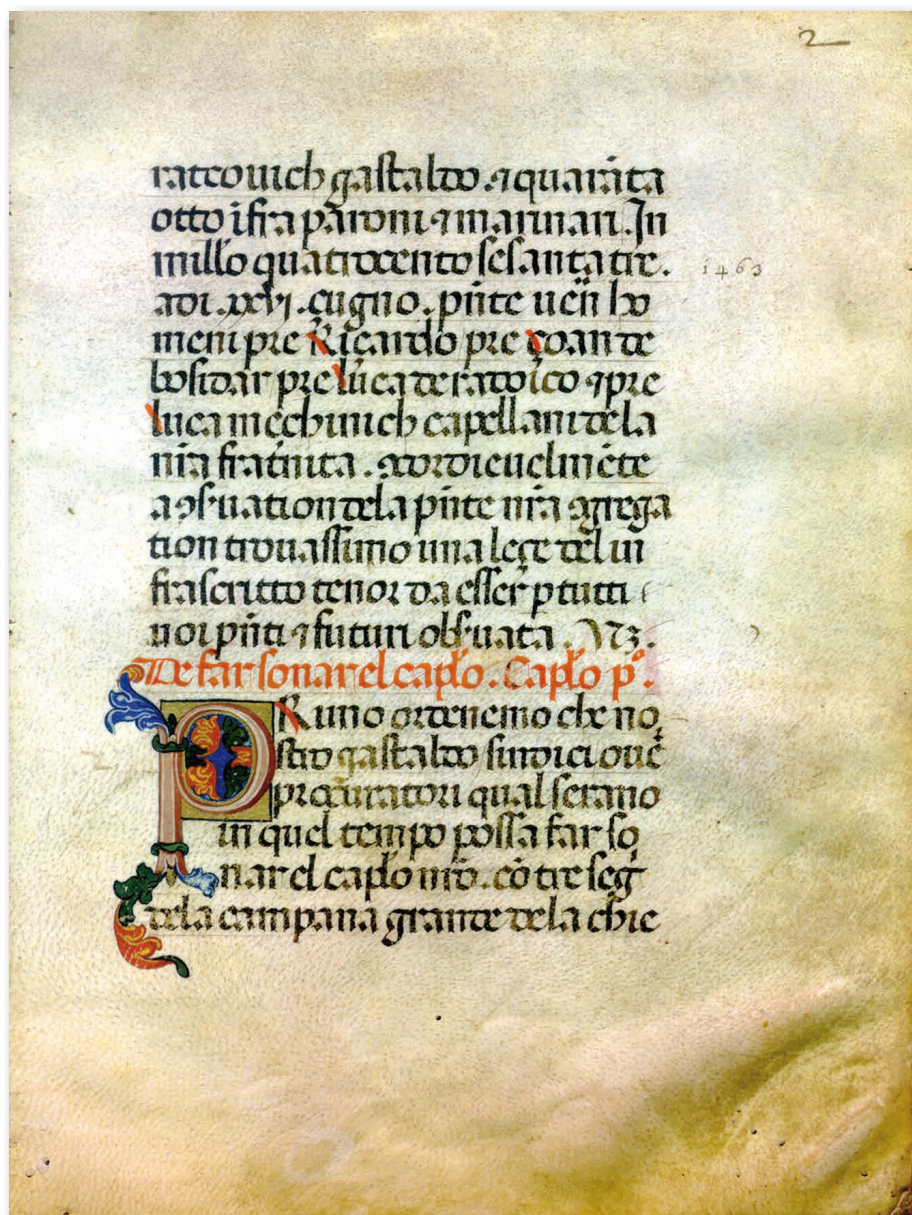 2
ratcouich gastaldo ⁊ quarāta
otto ifra paroni ⁊ marinari. In
millo quatrocento sesanta tre.
1463
adi. xxvi. çugno. pn̄te uen̄ ho
meni pre Ricardo pre çoan de
bosidar pre luca de radoico ⁊ pre
luca mechunich capellani dela
nr̄a frat̄nita.
a ↄs̄uation dela pn̄te nr̄a ↄgrega
tion trouassimo una leçe del in
frascritto tenor da esser ꝑ tutti
noi pn̄ti ⁊ futuri obs̄uata.
De far sonar el caplo. Caplo pº.
PRimo ordenemo che no
stro gastaldo sindici oue
procuratori qual serano
in quel tempo possa far so
nar el caplo nr̄o. cō tre seg
dela campana grande dela chie